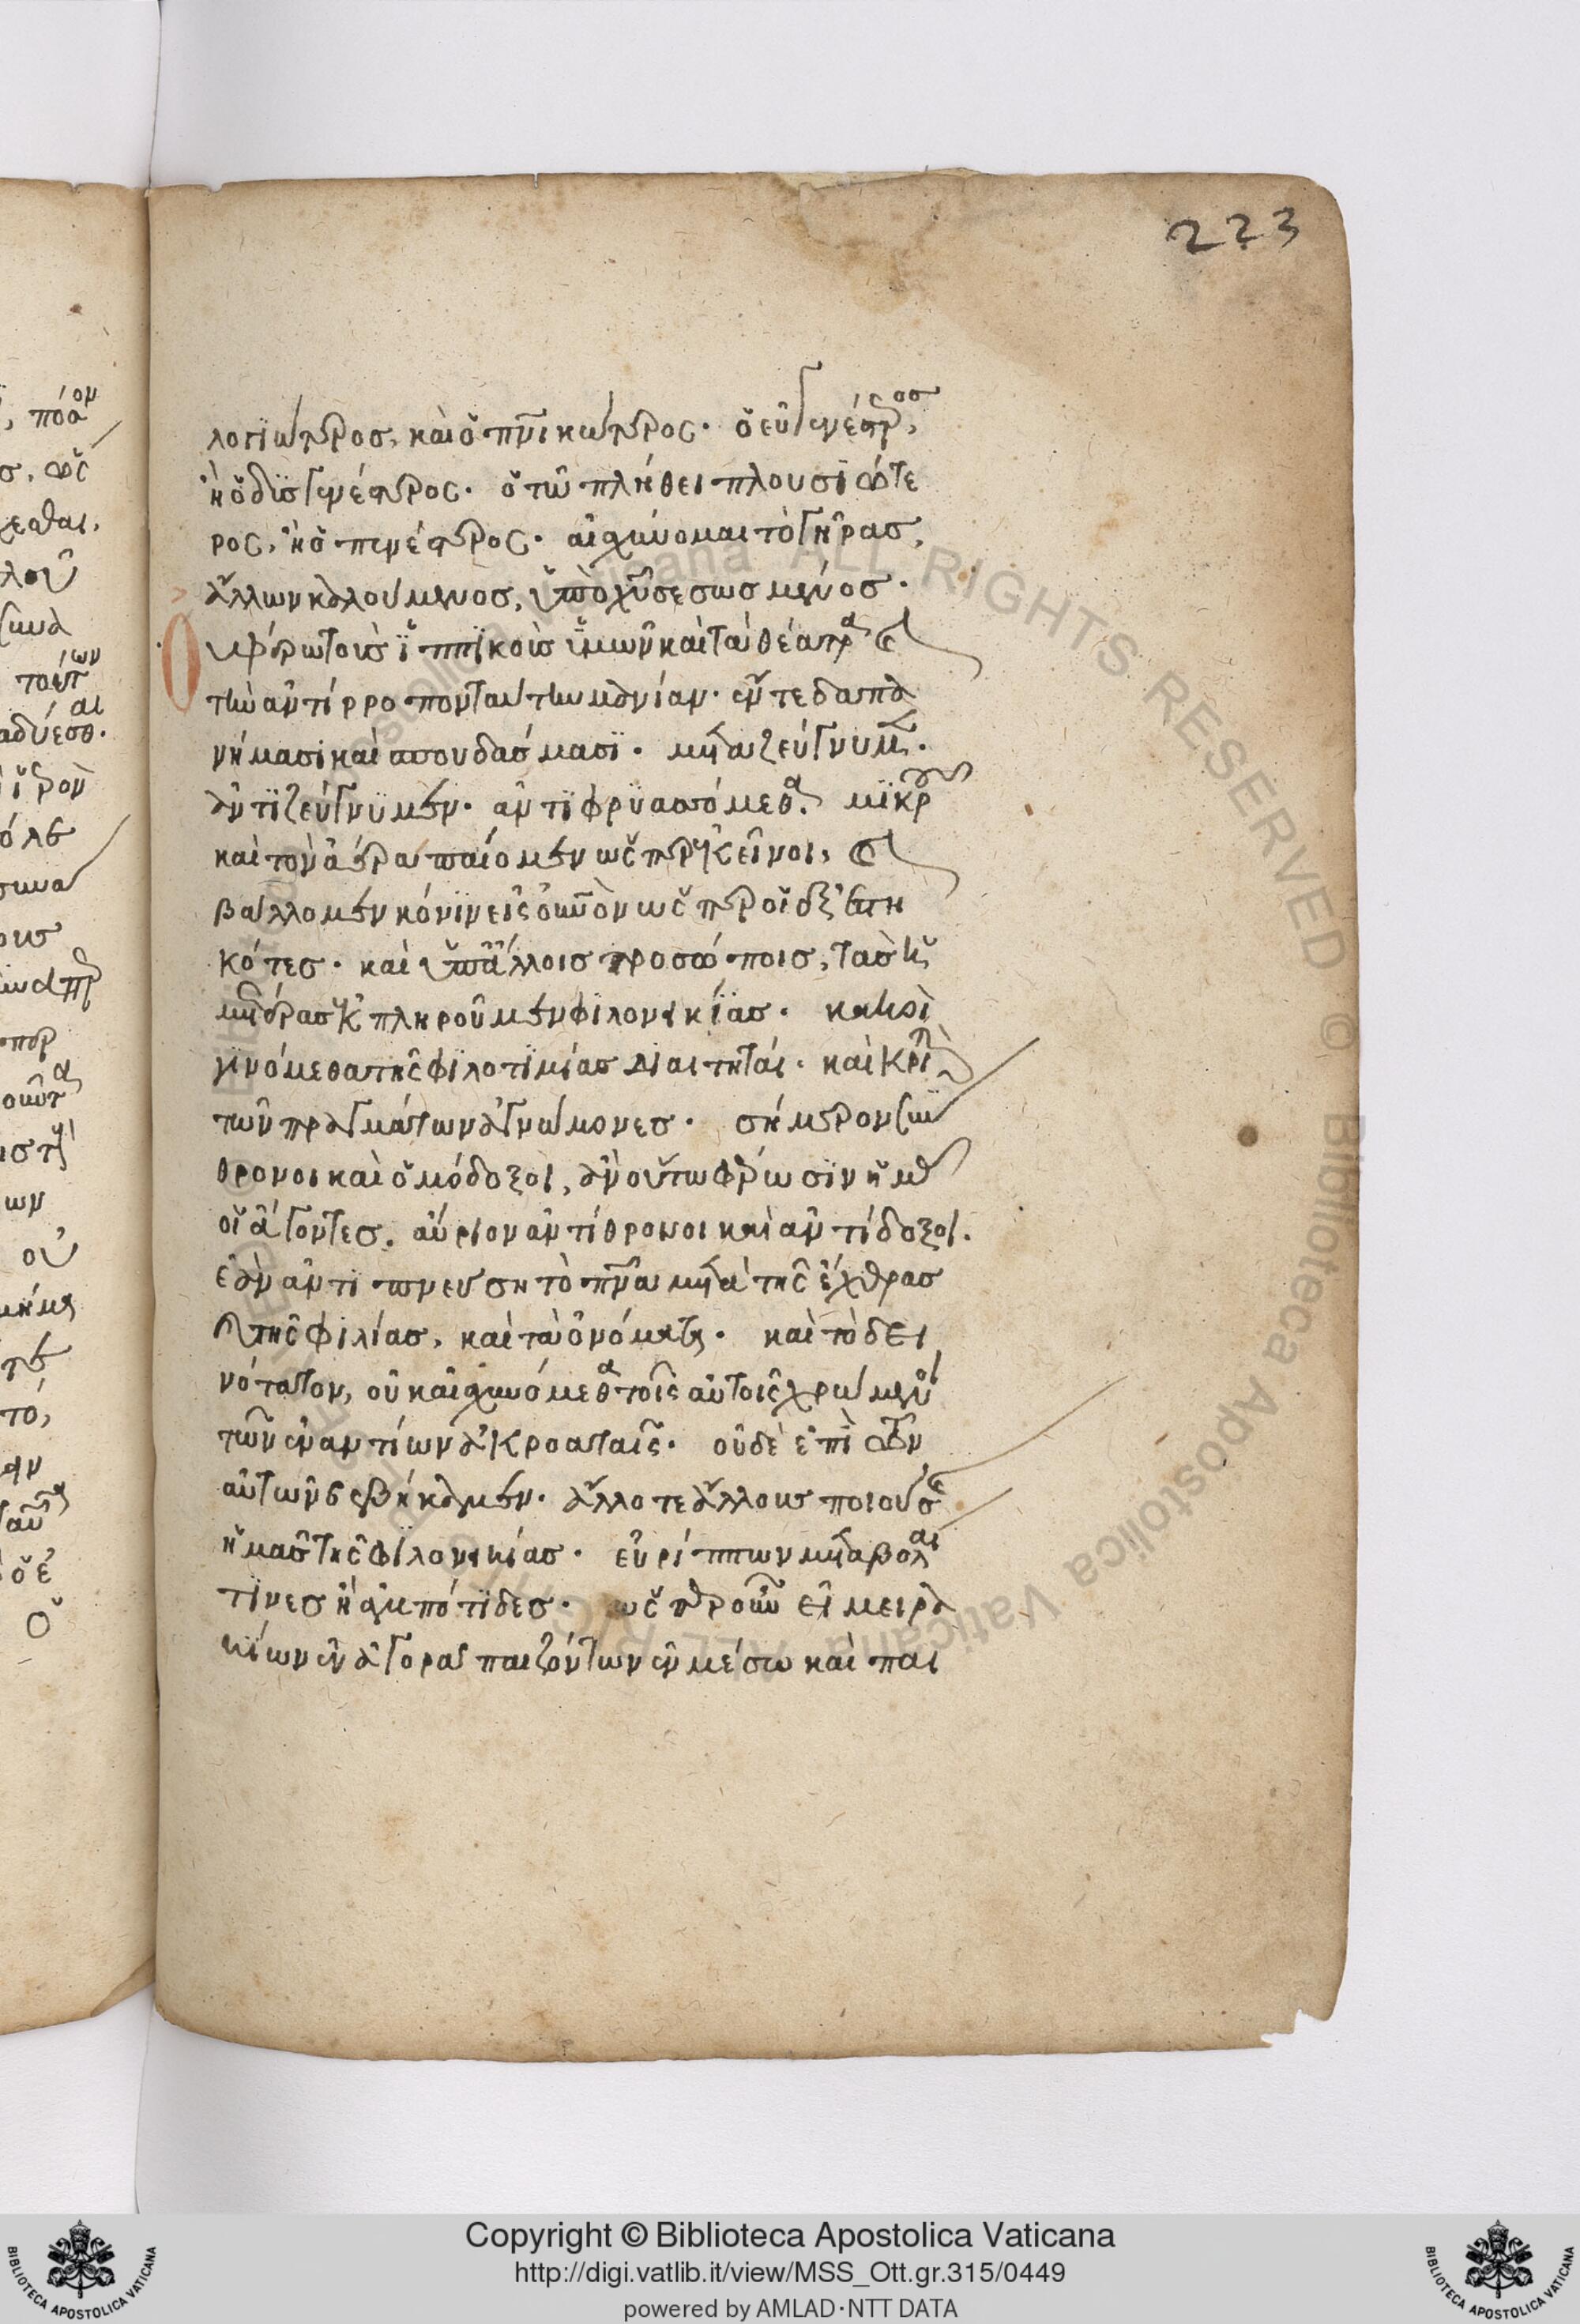 223
λογιώτερος, καὶ ὁ πνικώτερος. ὁ εὐγενέστερος,
ἢ ὁ δϊσγενέστερος. ὁ τῶ πλήθει πλουσϊώτε
ρος, ἢ ὁ πενέστερος. αἰσχύνομαι τὸ γῆρας,
ἄλλων καλούμενος, ὑπὸ χῦ σεσωσμένος.
Οὐ φέρω τοὺς ἵππϊκοὺς ὑμῶν καὶ τὰ θέατρα καὶ
τὴν ἀντίρροπον ταύτην μανίαν. ἔν τε δαπα
νήμασι καὶ σπουδάσμασϊ. μεταζεύγνυμεν.
ἀντϊζεύγνϋμεν. ἀντϊφρϋασσόμεθα. μϊκροῦ
καὶ τὸν ἀέρα παίομεν ὥσπερ ἐκεῖνοι, καὶ
βάλλομεν κόνϊν εἰς οὐνὸν ὥσπερ οἱ ἐξεστη
κότες. καὶ ὑπ' ἄλλοις προσώποις, τὰς ἡ
μετέρας ἐκπληροῦμεν φϊλονεικίας. κακοὶ
γϊνόμεθα τῆς φϊλοτϊμίας διαιτηταί. καὶ κριταὶ
τῶν πραγμάτων ἀγνώμονες. σήμερον σύν
θρονοι καὶ ὁμόδοξοι, ἂν οὕτω φέρωσϊν ἡμᾶς
οἱ ἄγοντες. αὔριον ἀντίθρονοι καὶ ἀντίδοξοι.
ἐὰν ἀντιπνεύση τὸ πνα μετὰ τῆς ἔχθρας
καὶ τῆς φιλίας, καὶ τὰ ὀνόματα. καὶ τὸ δει
νότατον, οὐκ αἰσχυνόμεθα τοῖς αὐτοῖς χρώμενοι
τῶν ἐναντίων ἀκροαταῖς. οὐδὲ ἐπὶ τῶν
αὐτῶν ἑστήκαμεν. ἄλλοτε ἄλλους ποιούσης
ἡμᾶς τῆς φϊλονεικίας. εὐρίππων μεταβολαί
τϊνες ἢ ἀμπότϊδες. ὥσπερ οὖν εἰ μειρα
κίων ἐν ἀγορᾶ παιζόντων ἐν μέσω καὶ παι
Copyright © Biblioteca Apostolica Vaticana
http://digi.vatlib.it/view/MSS_Ott.gr.315/0449
powered by AMLAD·NTT DATA
BIBLIOTECA APOSTOLICA VATICANA
BIBLIOTECA APOSTOLICA VATICANA